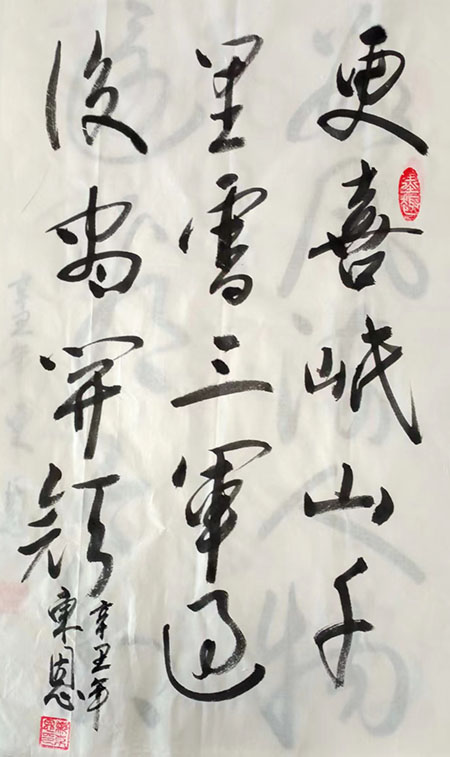 更喜岷山千
里雪三軍過
後盡開顏
辛丑年
東恩